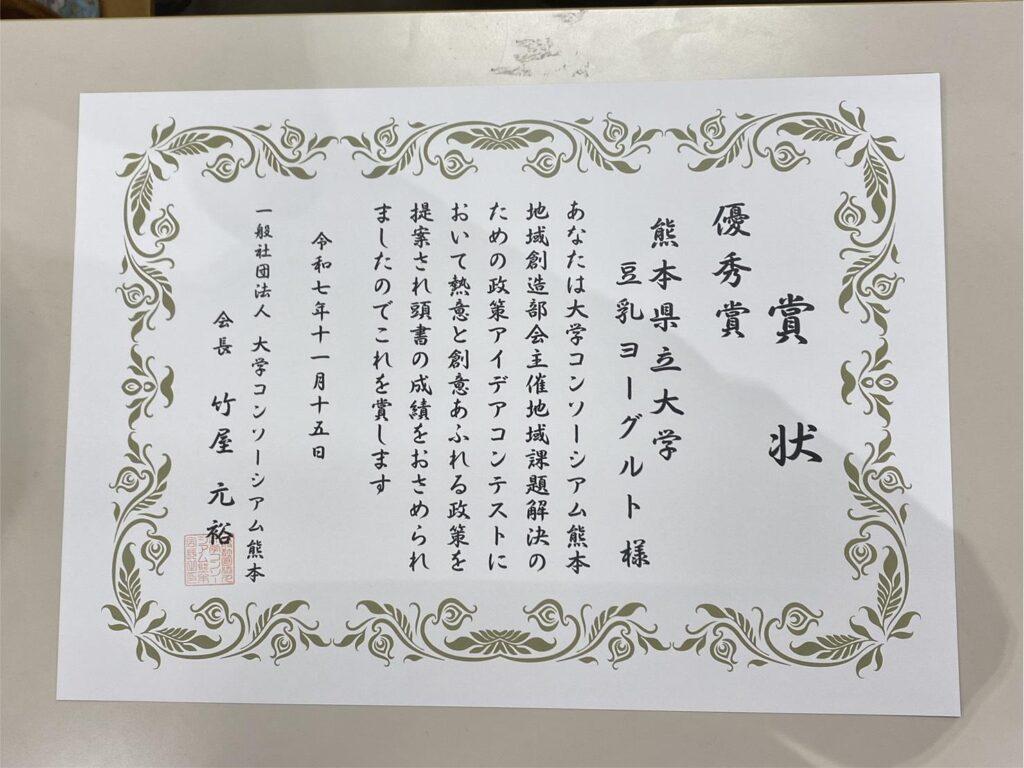 賞状
優秀賞
熊本県立大学
豆乳ヨーグルト 様
あなたは大学コンソーシアム熊本
地域創造部会主催地域課題解決の
ための政策アイデアコンテストに
おいて熱意と創意あふれる政策を
提案され頭書の成績をおさめられ
ましたのでこれを賞します
令和七年十一月十五日
一般社団法人 大学コンソーシアム熊本
会長 竹屋 元裕